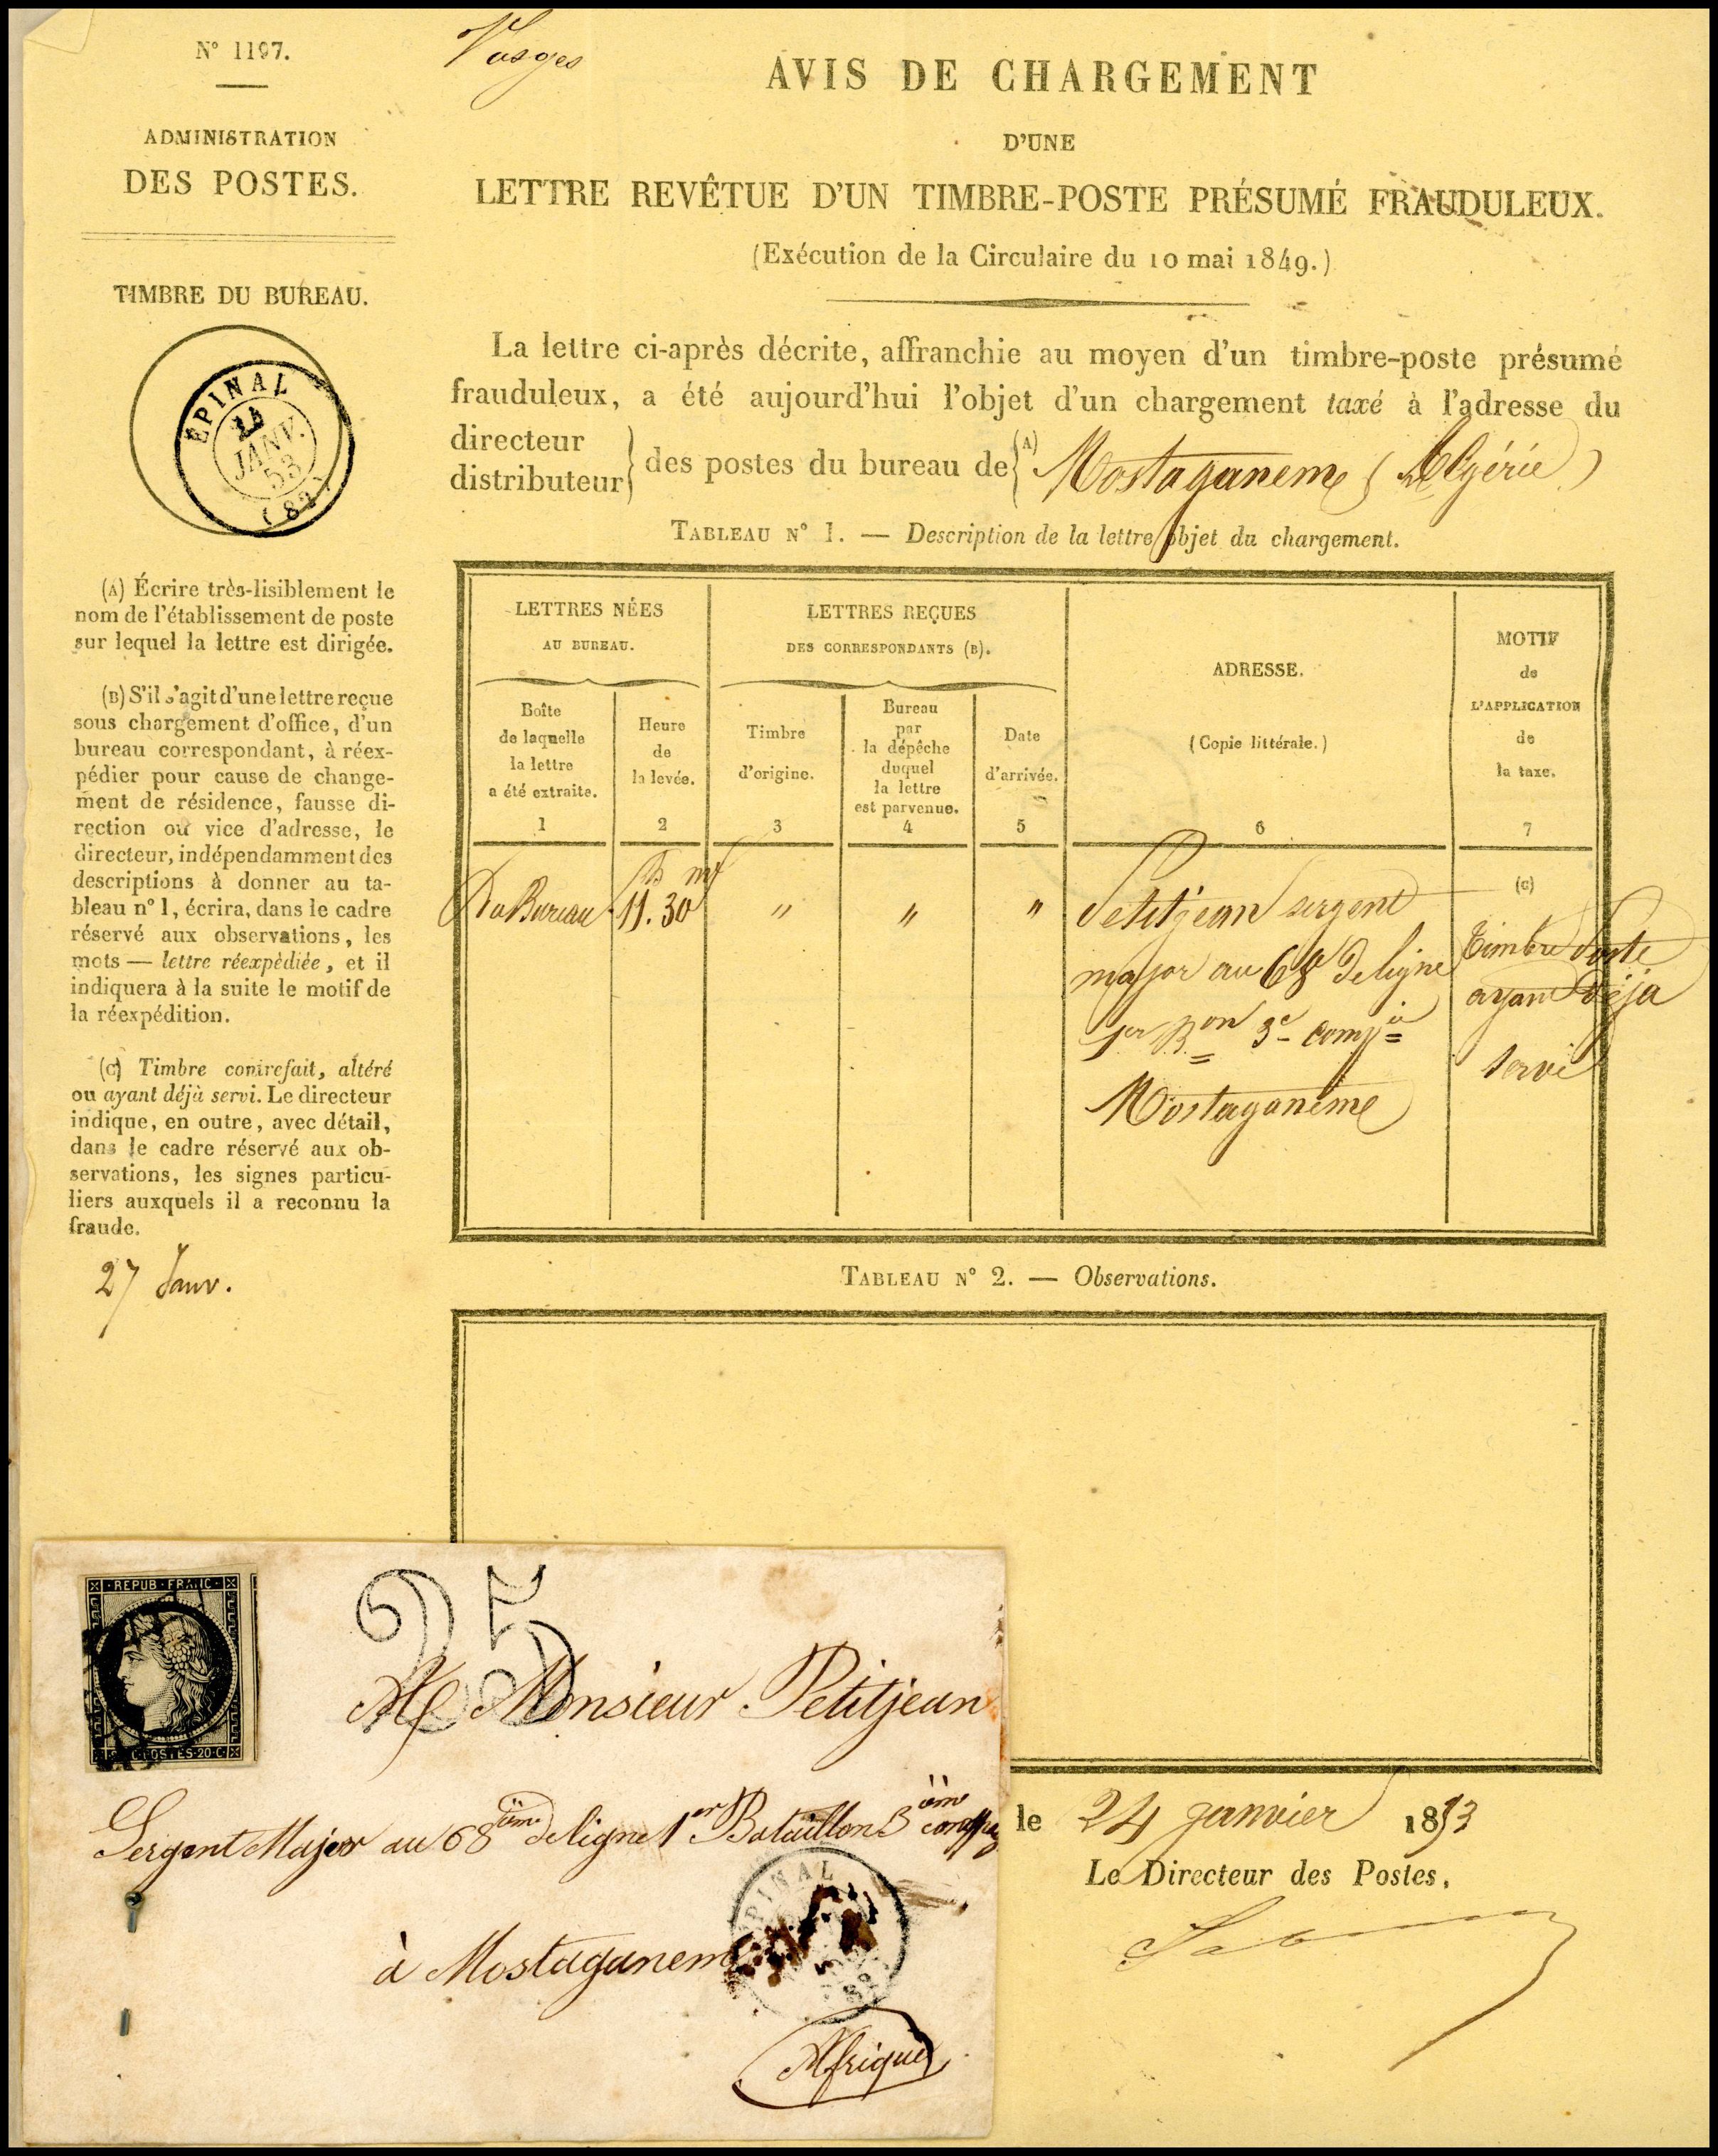 N° 1197.
ADMINISTRATION
DES POSTES.
TIMBRE DU BUREAU.
EPINAL
24
JANV.
53
(82)
(A) Écrire très-lisiblement le
nom de l'établissement de poste
sur lequel la lettre est dirigée.
(B) S'il s'agit d'une lettre reçue
sous chargement d'office, d'un
bureau correspondant, à réex-
pédier pour cause de change-
ment de résidence, fausse di-
rection ou vice d'adresse, le
directeur, indépendamment des
descriptions à donner au ta-
bleau n° 1, écrira, dans le cadre
réservé aux observations, les
mots — lettre réexpédiée, et il
indiquera à la suite le motif de
la réexpédition.
(C) Timbre contrefait, altéré
ou ayant déjà servi. Le directeur
indique, en outre, avec détail,
dans le cadre réservé aux ob-
servations, les signes particu-
liers auxquels il a reconnu la
fraude.
27 Janv.
Vosges
AVIS DE CHARGEMENT
D'UNE
LETTRE REVÊTUE D'UN TIMBRE-POSTE PRÉSUMÉ FRAUDULEUX.
(Exécution de la Circulaire du 10 mai 1849.)
La lettre ci-après décrite, affranchie au moyen d'un timbre-poste présumé
frauduleux, a été aujourd'hui l'objet d'un chargement taxé à l'adresse du
directeur
distributeur } des postes du bureau de {(A) Mostaganem (Algérie)
TABLEAU N° 1. — Description de la lettre objet du chargement.
LETTRES NÉES
AU BUREAU.
LETTRES REÇUES
DES CORRESPONDANTS (B).
ADRESSE.
(Copie littérale.)
6
MOTIF
de
L'APPLICATION
de
la taxe.
7
Boîte
de laquelle
la lettre
a été extraite.
1
Heure
de
la levée.
2
Timbre
d'origine.
3
Bureau
par
la dépêche
duquel
la lettre
est parvenue.
4
Date
d'arrivée.
5
Du Bureau
11.h 30m
"
"
"
Petitjean sergent
major au 68e De ligne
1er Bon 3e Compie
Mostaganème
(C)
Timbre Poste
ayant Déja
servi
TABLEAU N° 2. — Observations.
le 24 janvier 1853
Le Directeur des Postes,
REPUB FRANC
POSTES 20 C
25
A Monsieur Petitjean
Sergent Major au 68ème de ligne 1er Bataillon 3ème
à Mostaganem
EPINAL
Afrique